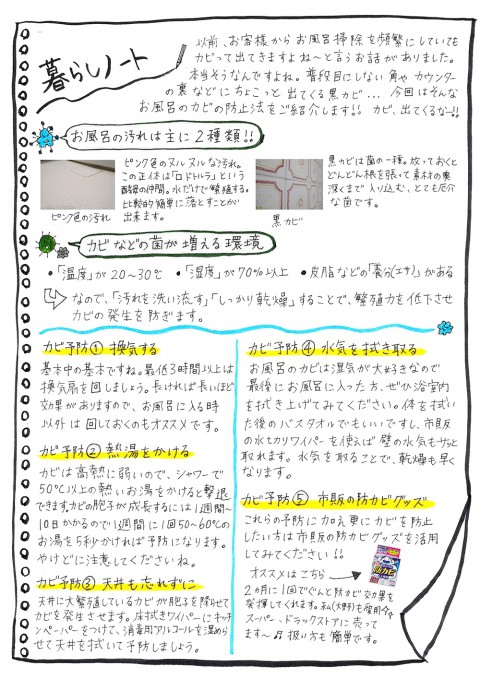 暮らしノート
以前、お客様からお風呂掃除を頻繁にしていても
カビって出てきますよね〜と言うお話がありました。
本当そうなんですよね。普段目にしない角やカウンター
の裏などにちょこっと出てくる黒カビ... 今回はそんな
お風呂のカビの防止法をご紹介します!! カビ、出てくるなー!!
お風呂の汚れは主に2種類!!
ピンク色のヌルヌルな汚れ。
この正体は「ロドトルラ」という
酵母の仲間。水だけで繁殖する。
比較的簡単に落とすことが
出来ます。
ピンク色の汚れ
黒カビは菌の一種。放っておくと
どんどん根を張って素材の奥
深くまで入り込む、とても厄介
な菌です。
黒カビ
カビなどの菌が増える環境
•「温度」が20〜30℃ •「湿度」が70%以上 •皮脂などの「養分(エサ)」がある
なので、「汚れを洗い流す」「しっかり乾燥」することで、繁殖力を低下させ
カビの発生を防ぎます。
カビ予防① 換気する
基本中の基本ですね。最低3時間以上は
換気扇を回しましょう。長ければ長いほど
効果がありますので、お風呂に入る時
以外は回しておくのもオススメです。
カビ予防② 熱湯をかける
カビは高熱に弱いので、シャワーで
50℃以上の熱いお湯をかけると撃退
できます。カビの胞子が成長するには1週間〜
10日かかるので1週間に1回50〜60℃の
お湯を5秒かければ予防になります。
やけどに注意してくださいね。
カビ予防③ 天井も忘れずに
天井に大繁殖しているカビが胞子を降らせて
カビを発生させます。床拭きワイパーにキッチ
ンペーパーをつけて、消毒用アルコールを湿めら
せて天井を拭いて予防しましょう。
カビ予防④ 水気を拭き取る
お風呂のカビは湿気が大好きなので
最後にお風呂に入った方、ぜひ浴室内
を拭き上げてみてください。体を拭い
た後のバスタオルでもいいですし、市販
の水切りワイパーを使えば壁の水気もサッと
取れます。水気を取ることで、乾燥も早く
なります。
カビ予防⑤ 市販の防カビグッズ
これらの予防に加え更にカビを防止
したい方は市販の防カビグッズを活用
してみてください!!
オススメはこちら
防カビ
2ヵ月に1回でぐんと防カビ効果を
発揮してくれます。私(大野)も愛用☆
スーパー、ドラックストアに売って
ます〜♫ 扱い方も簡単です。